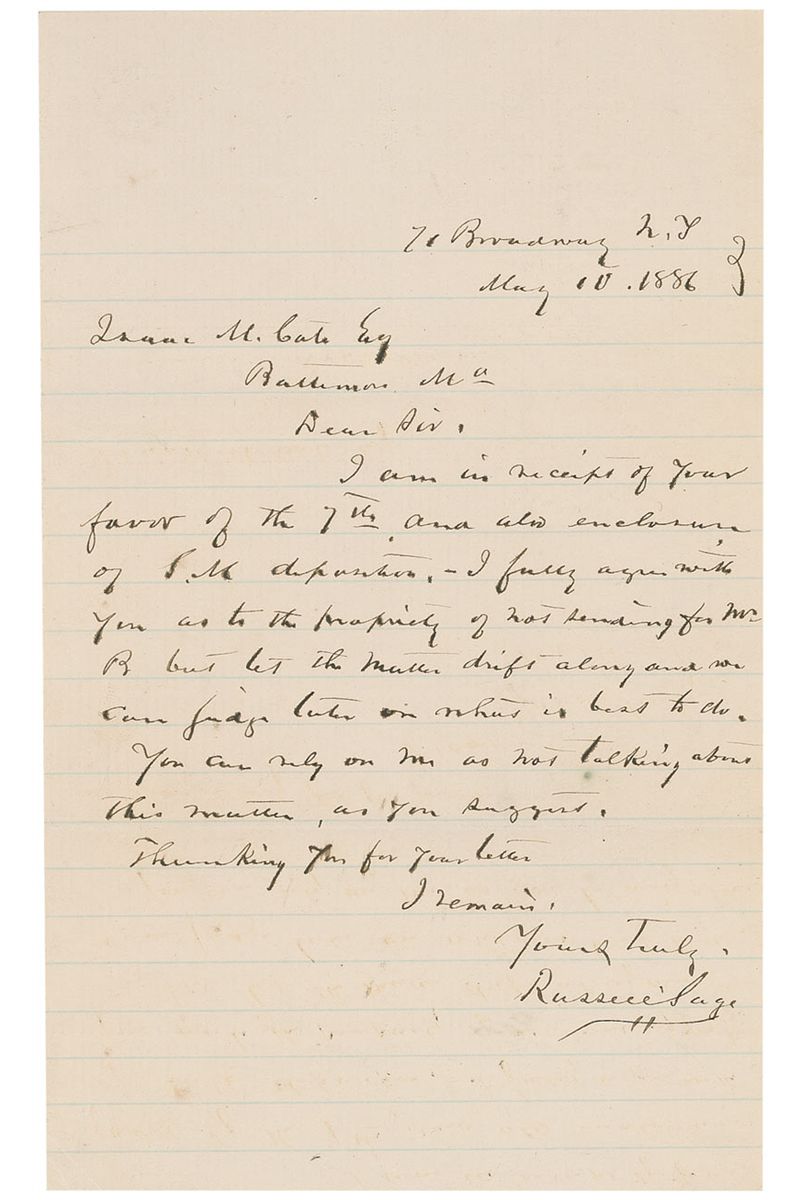 71 Broadway N.Y
May 10. 1886
Isaac M. Cate Esq
Baltimore Md
Dear Sir.
I am in receipt of your
favor of the 7th, and also enclosure
of S.M deposition. - I fully agree with
you as to the propriety of not sending for Mr
B but let the matter drift along and we
can judge later on what is best to do.
You can rely on me as not talking about
this matter, as you suggest.
Thanking you for your letter
I remain.
Yours truly.
Russell Sage